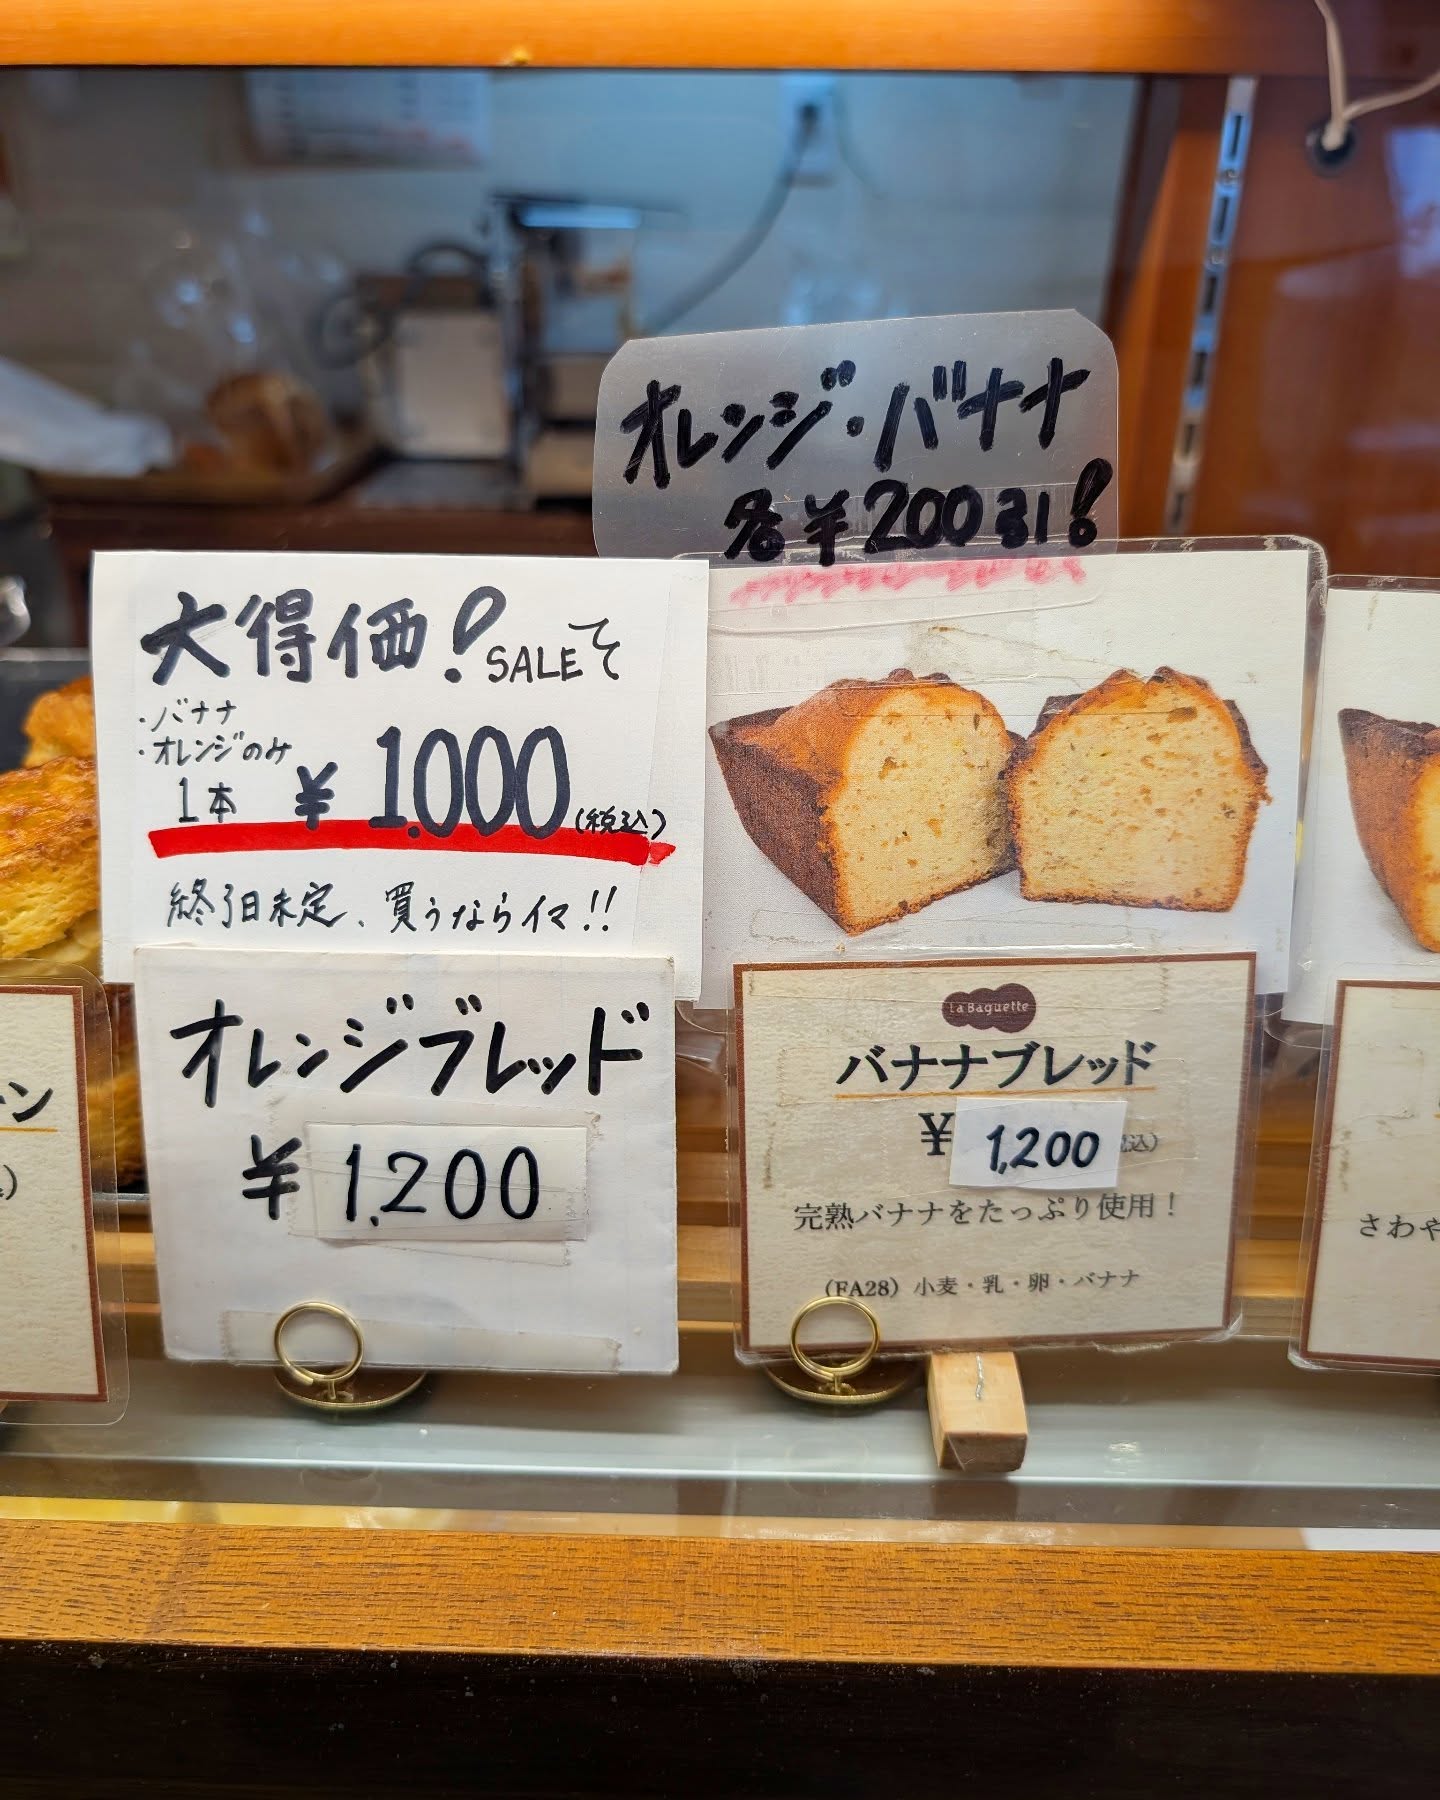 オレンジ・バナナ
各¥200引!
大得価!SALEです
・バナナ
・オレンジのみ
1本 ¥1,000(税込)
終了日未定、買うならイマ!!
オレンジブレッド
¥1,200
La Baguette
バナナブレッド
¥1,200 込)
完熟バナナをたっぷり使用!
(FA28) 小麦・乳・卵・バナナ
ン
)
さわや